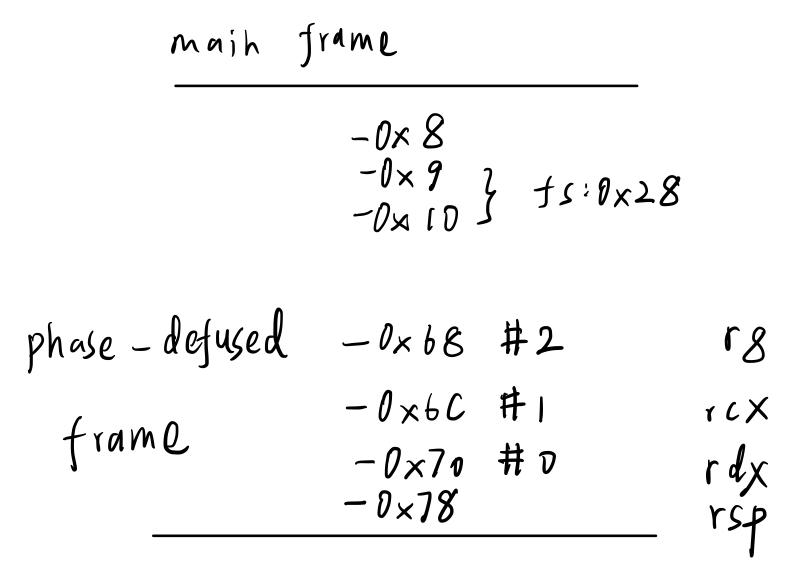 main frame
-0x8
-0x9
-0x10 } fs:0x28
phase-defused frame
-0x68 #2 r8
-0x6C #1 rcx
-0x70 #0 rdx
-0x78 rsp